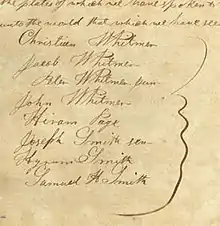 the plates of which we have spoken &
unto the world that which we have seen
Christian Whitmer
Jacob Whitmer
Peter Whitmer jun
John Whitmer
Hiram Page
Joseph Smith sen
Hyrum Smith
Samuel H Smith